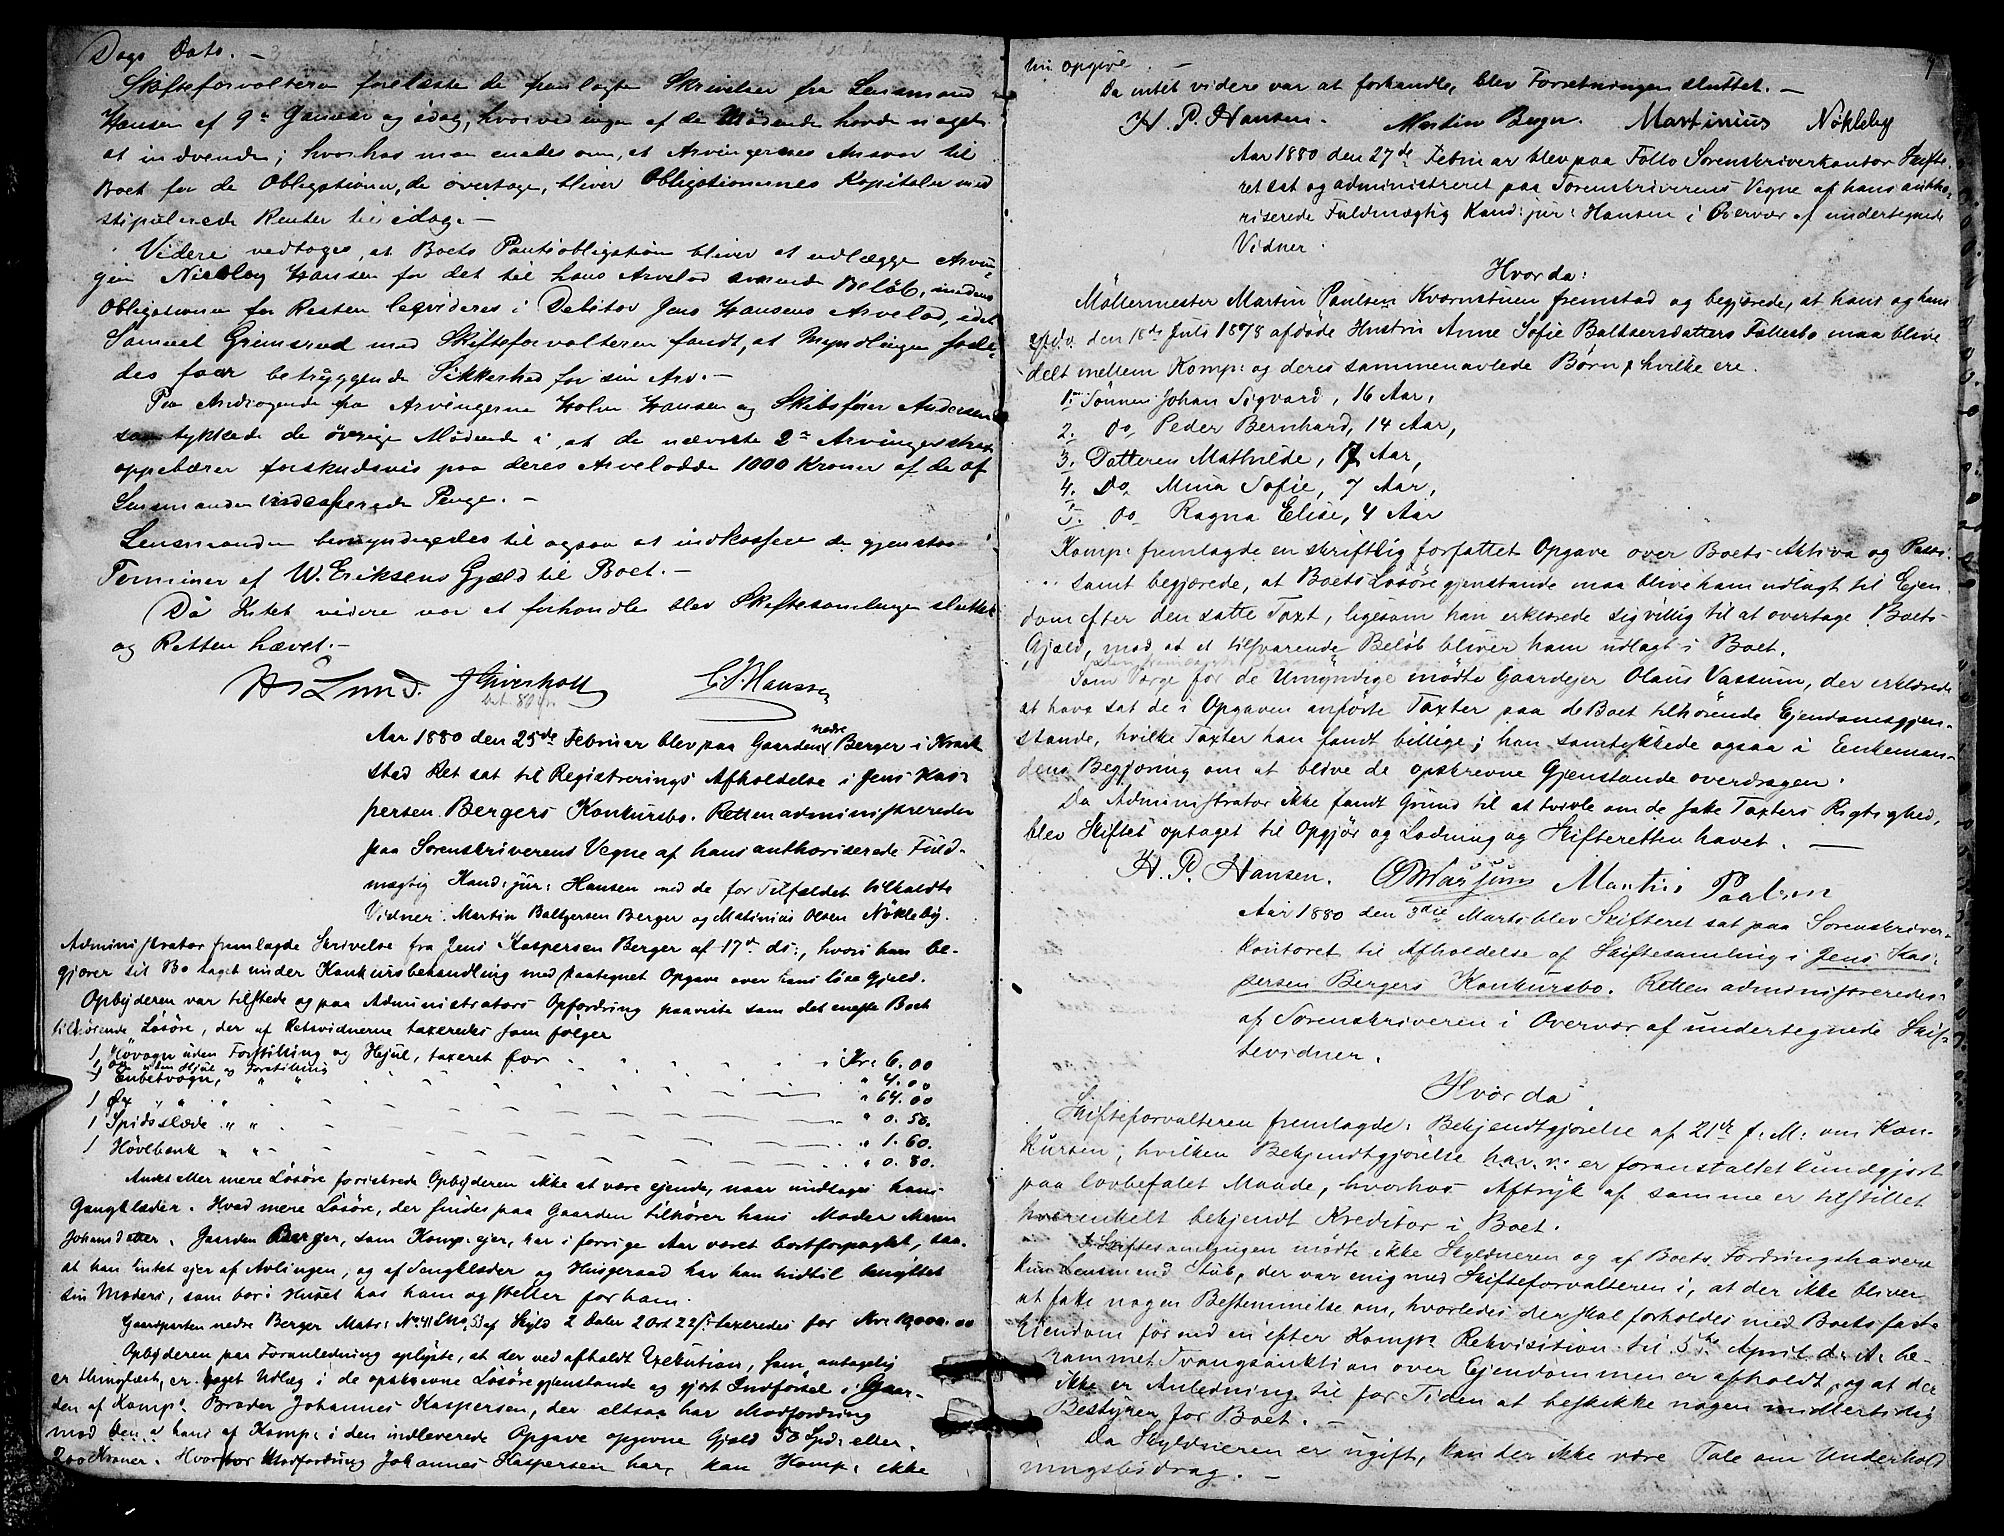 Dags Dato. —
Skifteforvalteren forelæste de fremlagte Skrivelser fra Lensmand
Hansen af 9de Januar og idag, hvorved ingen af de Mødende havde noget
at indvende; hvorhos man enedes om, at Arvingernes Ansvar til
Boet for de Obligationer, de overtage, bliver Obligationernes Kapitaler med
stipulerede Renter til idag. —
Videre vedtoges, at Boets Pantobligation bliver at udlægge Arvin-
gen Nicolay Hansen for det til hans Arvelod svarende Beløb, medens
Obligationen for Resten leqvideres i Debitor Jens Hansens Arvelod, idet
Samuel Grimsrud med Skifteforvalteren fandt, at Myndlingen saale-
des faar betryggende Sikkerhed for sin Arv. —
Paa Andragende fra Arvingerne Holm Hansen og Skibsfører Andersen
samtykkede de øvrige Mødende i, at de nævnte 2de Arvinger strax
oppebærer forskudsvis paa deres Arvelodde 1000 Kroner af de af
Lensmanden indcasserede Penge. —
Lensmanden bemyndigedes til ogsaa at indkassere de gjenstaa-
Terminer af W. Eriksens Gjæld til Boet. —
Da Intet videre var at forhandle blev Skiftesamlingen sluttet
og Retten hævet. —
Lund. J Giverholt C. S. Hansen
Aar 1880 den 25de Februar blev paa Gaarden nedre Berger i Kraak-
stad Ret sat til Registrerings Afholdelse i Jens Kas-
persen Bergers Konkursbo. Retten administreredes
paa Sorenskriverens Vegne af hans authoriserede Fuld-
mægtig Kand: jur: Hansen med de for Tilfældet tilkaldte
Vidner Martin Baltzersen Berger og Matinius Olsen Nökleby.
Administrator fremlagde Skrivelse fra Jens Kaspersen Berger af 17de ds:, hvori han be-
gjærer sit Bo taget under Konkursbehandling med paategnet Opgave over hans löse Gjæld.
Opbyderen var tilstede og paa Administrators Opfordring paaviste som det eneste Boet
tilhørende Lösöre, der af Retsvidnerne taxeredes som følger
1 Hövogn uden Forstilling og Hjul, taxeret for Kr: 6.00
1 Do uden Hjul og Forstilling " 4.00
1 Enbetvogn,
1 Öx " " " 64.00
1 Spidsslæde " " " 0.50.
1 Hövlbenk " " " 1.60.
" 0.80.
Andet eller mere Lösöre forsikrede Opbyderen ikke at være ejende, naar undtages hans
Gangklæder. Hvad mere Lösöre, der findes paa Gaarden tilhører hans Moder Maren
Johansdatter. Gaarden Berger, som Komp: ejer, har i forrige Aar været bortforpagtet, saa
at han Intet ejer af Avlingen, og af Sengklæder og Husgeraad har han hidtil benyttet
sin Moders, som bor i Huset hos ham og steller for ham.
Gaardparten nedre Berger Matr: No 41 Lno 53 af Skyld 2 Daler 2 Ort 22 ß taxeredes for Kr: 10,000.00
Opbyderen paa Foranledning oplyste, at der ved afholdt Exekution, som antagelig
er thinglæst, er taget Udlæg i de opskrevne Lösöregjenstande og gjort Indførsel i Gaar-
den af Komp: Broder Johannes Kaspersen, der altsaa har Modfordring
mod den af hans af Komp: i den indleverede Opgave opgivne Gjæld 50 Spd: eller
200 Kroner. Hvor stor Modfordring Johannes Kaspersen har, kan Komp: ikke
nu opgive. —
Da intet videre var at forhandle, blev Forretningen sluttet. —
H. P. Hansen. Martin Berger. Martinius Nökleby
Aar 1880 den 27de Februar blev paa Follo Sorenskriverkontor Skifte-
ret sat og administreret paa Sorenskriverens Vegne af hans autho-
riserede Fuldmægtig Kand: jur: Hansen i Overvær af undertegnede
Vidner.
Hvor da:
Møllermester Martin Paulsen Kværnstuen fremstod og begjærede, at hans og hans
den 18de Juli 1878 afdøde Hustru Anne Sofie Baltsersdatters Fællesbo maa blive
delt mellem Komp: og deres sammenavlede Børn, hvilke ere.
1. Sönnen Johan Sigvard, 16 Aar,
2. Do, Peder Bernhard, 14 Aar,
3. Datteren Mathilde, Aar,
4. Do, Mina Sofie, 7 Aar,
5. Do Ragna Elise, 4 Aar
Komp: fremlagde en skriftlig forfattet Opgave over Boets Aktiva og Passi-
samt begjærede, at Boets Lösöregjenstande maa blive ham udlagt til Ejen-
dom efter den satte Taxt, ligesom han erklærede sig villig til at overtage Boets
Gjæld, mod, at et tilsvarende Beløb bliver ham udlagt i Boet.
Som Værge for de Umyndige mødte Gaardejer Olaus Vassum, der erklærede
at have sat de i Opgaven anførte Taxter paa de Boet tilhørende Ejendomsgjen-
stande, hvilke Taxter han fandt billige; han samtykkede ogsaa i Enkeman-
dens Begjæring om at blive de opskrevne Gjenstande overdragen.
Da Administrator ikke fandt Grund til at tvivle om de satte Taxters Rigtighed,
blev Skiftet optaget til Opgjör og Lodning og Skifteretten hævet. —
H. P. Hansen. O Wassum Martin Paulsen
Aar 1880 den 3die Marts blev Skifteret sat paa Sorenskriver-
kontoret til Afholdelse af Skiftesamling i Jens Kas-
persen Bergers Konkursbo. Retten administreredes
af Sorenskriveren i Overvær af undertegnede Skif-
tevidner.
Hvor da
Skifteforvalteren fremlagde: Bekjendtgjørelse af 21de f: M: om Kon-
kursen, hvilken Bekjendtgjørelse h.a.v.v. er foranstaltet kundgjort
paa lovbefalet Maade, hvorhos Aftryk af samme er tilstillet
hver enkelt bekjendt Kreditor i Boet.
I Skiftesamlingen mødte ikke Skyldneren og af Boets Fordringshavere
kun Lensmand Stub, der var enig med Skifteforvalteren i, at der ikke bliver
at fatte nogen Bestemmelse om, hvorledes der skal forholdes med Boets faste
Eiendom før end en efter Komp: Rekvisition til 5te April d: A: be-
rammet Tvangsauktion over Ejendommen er afholdt, og at der
ikke er Anledning til for Tiden at beskikke nogen midlertidig
Bestyrer for Boet. —
Da Skyldneren er ugift, kan der ikke være Tale om Underhold-
ningsbidrag. —